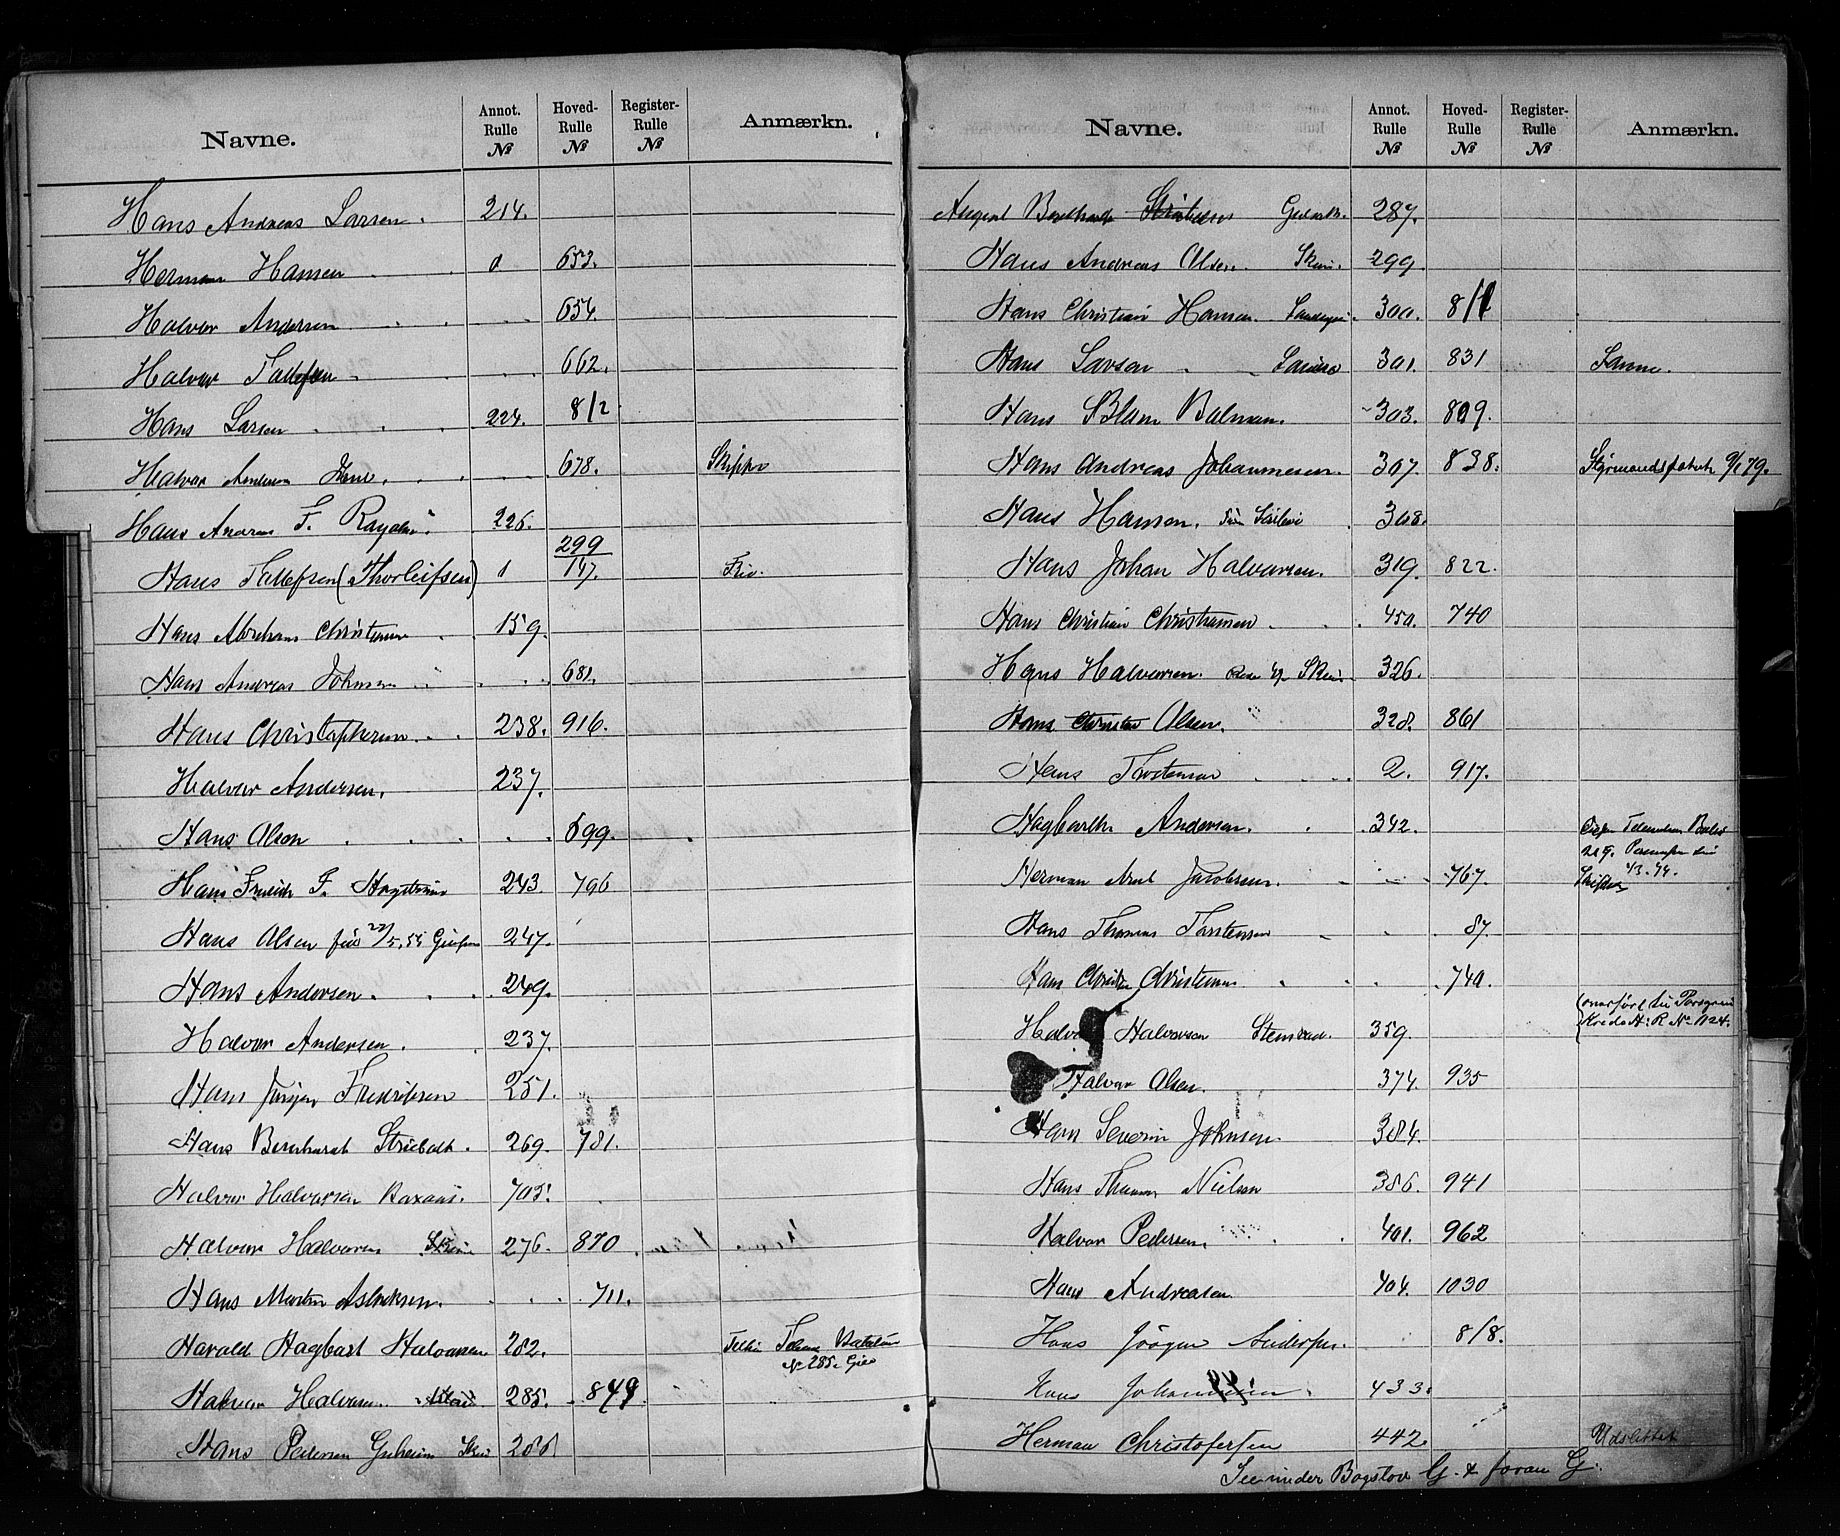 Navne. Annot. Rulle № Hoved- Rulle № Register- Rulle № Anmærkn.
Hans Andreas Larsen. 214.
Herman Hansen 653.
Halvor Andersen 654.
Halvor Tallefsen 662.
Hans Larsen 224. 812
Halvor Andersen 678. Skippr
Hans Andreas F. 226.
Hans Tallefsen (Thorleifsen) 299 147. Fri.
Hans Abraham Christensen 159.
Hans Andreas Johnsen 681.
Hans Christophersen 238. 916.
Halvor Andersen. 237.
Hans Olsen 699.
Hans Fredrik F. Hagstrøm 243 796
Hans Olsen 22/5.55 247.
Hans Andersen. 249.
Halvor Andersen. 237.
Hans Jørgen Fredriksen 251.
Hans Bernhardt Stribolt. 269. 781.
Halvor Halvorsen 705.
Halvor Halvorsen Skien 276. 870
Hans Martin Aslaksen. 711.
Harald Hagbart Halvorsen 282. № 285.
Halvor Halvorsen 285. 849
Hans Pedersen Skien 286
Navne. Annot. Rulle № Hoved- Rulle № Register- Rulle № Anmærkn.
August Bernhard 287.
Hans Andreas Olsen. Skien. 299.
Hans Christian Hansen 300. 811
Hans Larsen 301. 831
Hans Blom Bulman. 303. 809.
Hans Andreas Johannesen. 307. 838. 9/1 79.
Hans Hansen. 308.
Hans Johan Halvorsen. 319. 822.
Hans Christian Christensen 450. 740
Hans Halvorsen. Skien. 326.
Hans Olsen. 328. 861
Hans Thorstensen 2. 917.
Hagbarth Andersen. 342.
Herman Jacobsen. 767. 43-74.
Hans Thomas Torstensen 87.
Hans Christian Christensen 740.
Halvor Halvorsen Stensrud. 359. overført til Porsgrund Kreds H. R. № 1124.
Halvor Olsen. 374. 935
Hans Severin Johnsen. 384.
Hans Thomas Nielsen 386. 941
Halvor Pedersen. 401. 962
Hans Andreasen 404. 1030
Hans Jørgen Andersen. 818.
Hans Johannesen 433.
Herman Christofersen 442. Udslettet
See under Bogstav G. & foran G.